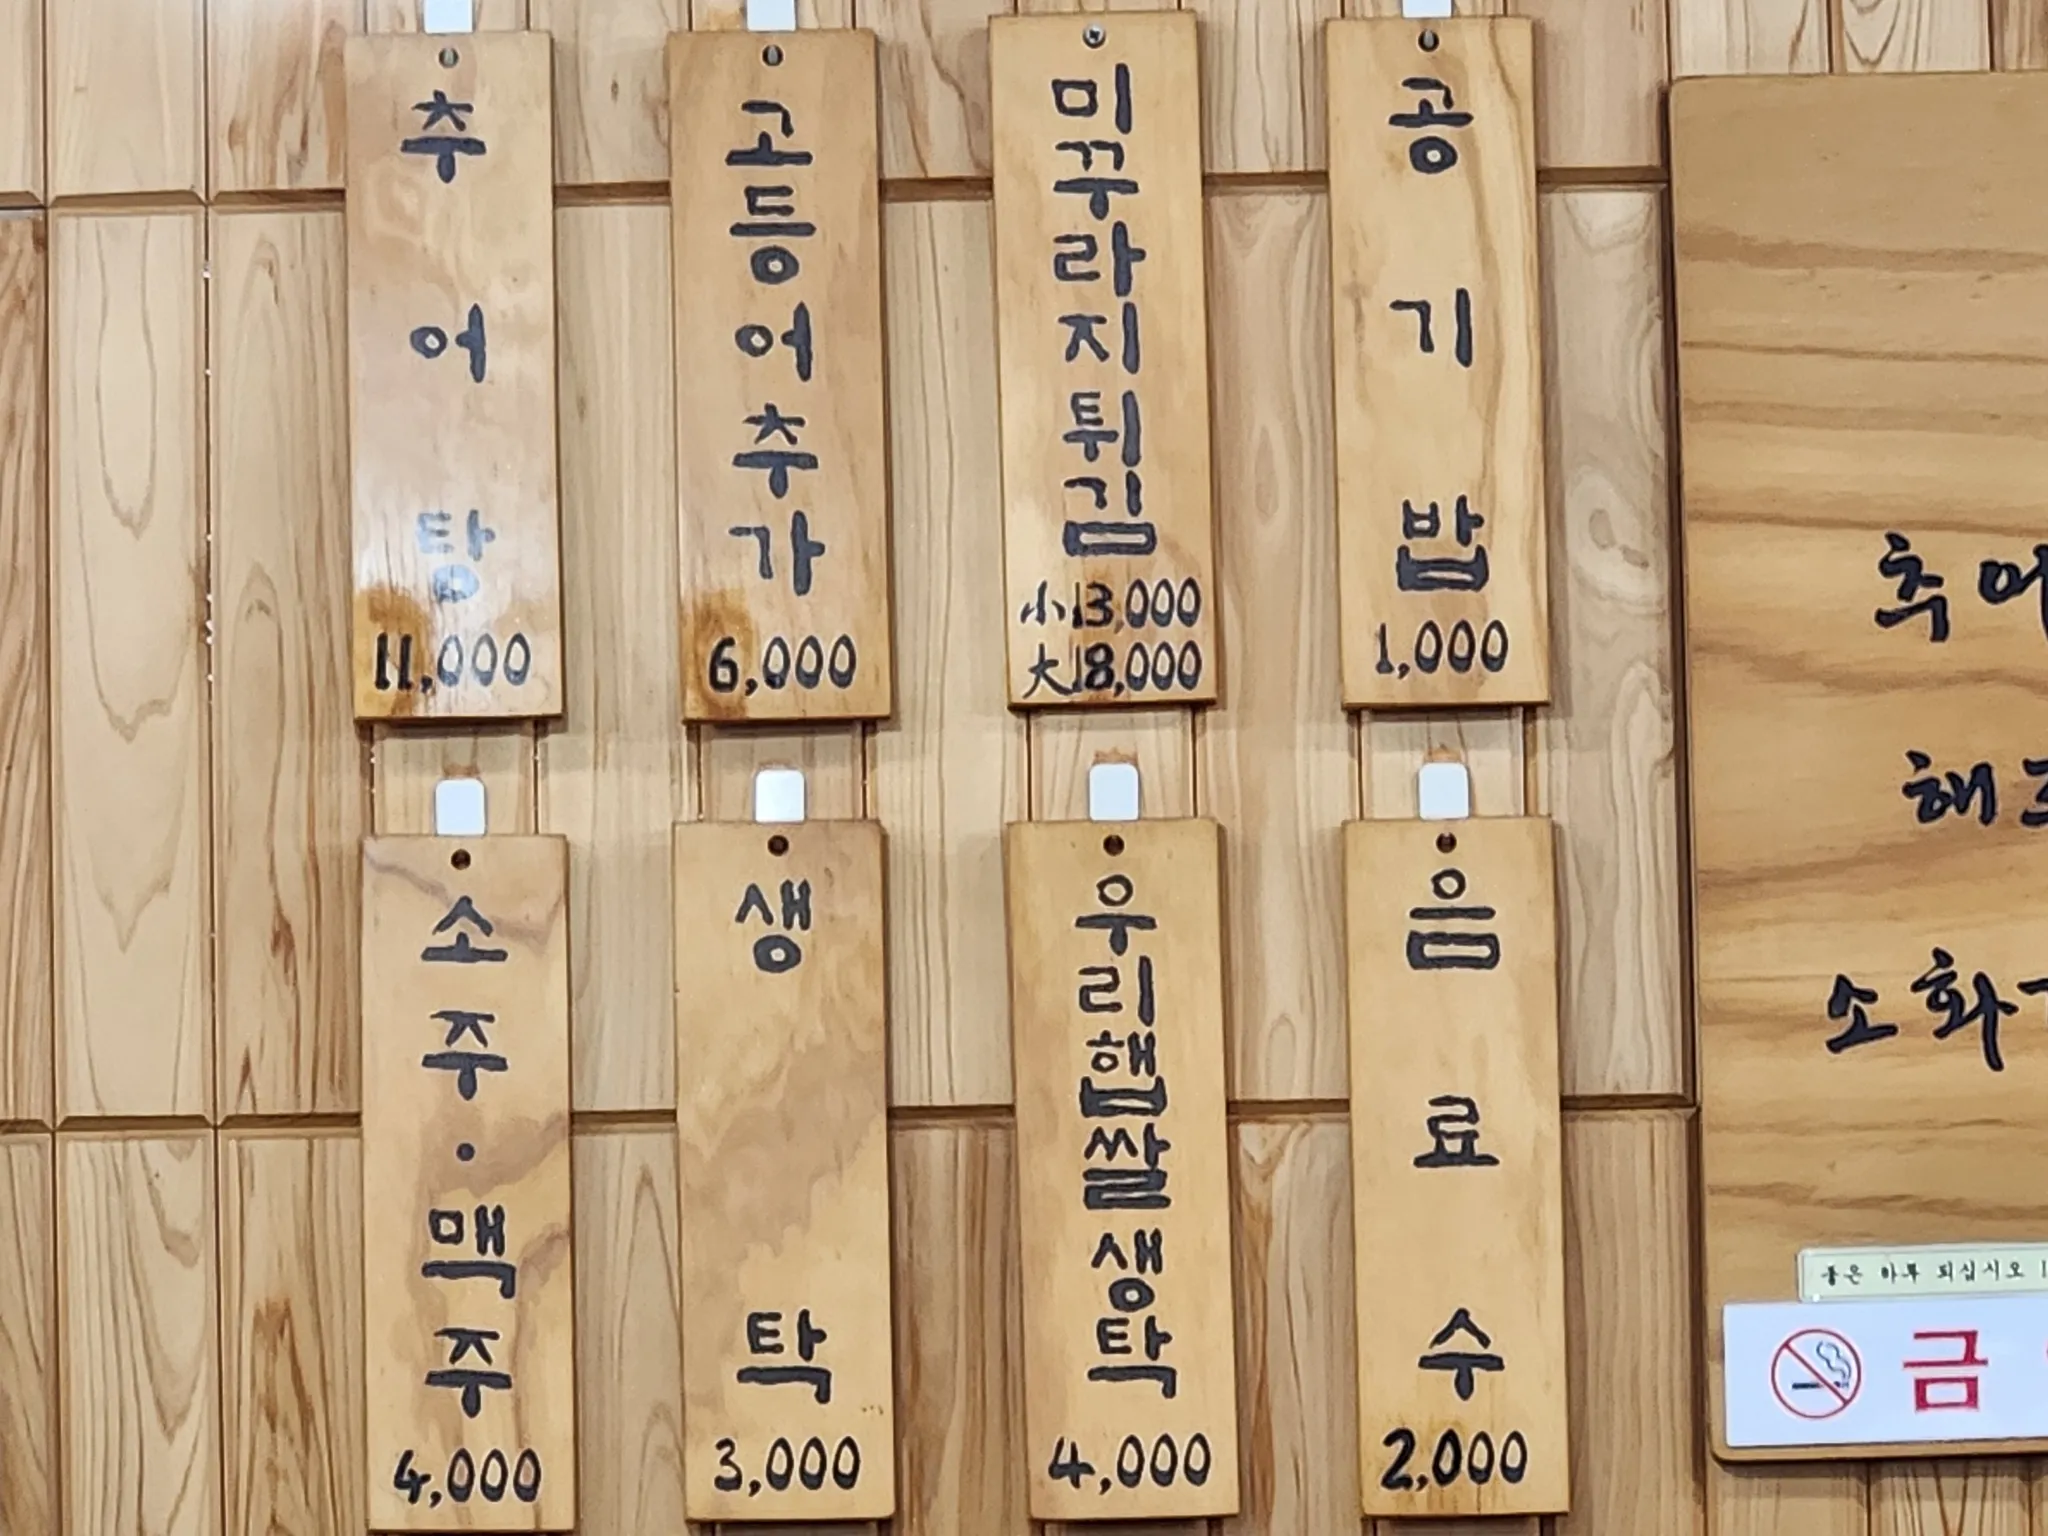 추어탕
11,000
고등어추가
6,000
미꾸라지튀김
小13,000
大18,000
공기밥
1,000
소주·맥주
4,000
생탁
3,000
우리햅쌀생탁
4,000
음료수
2,000
추어
해
소화
되십시오
금